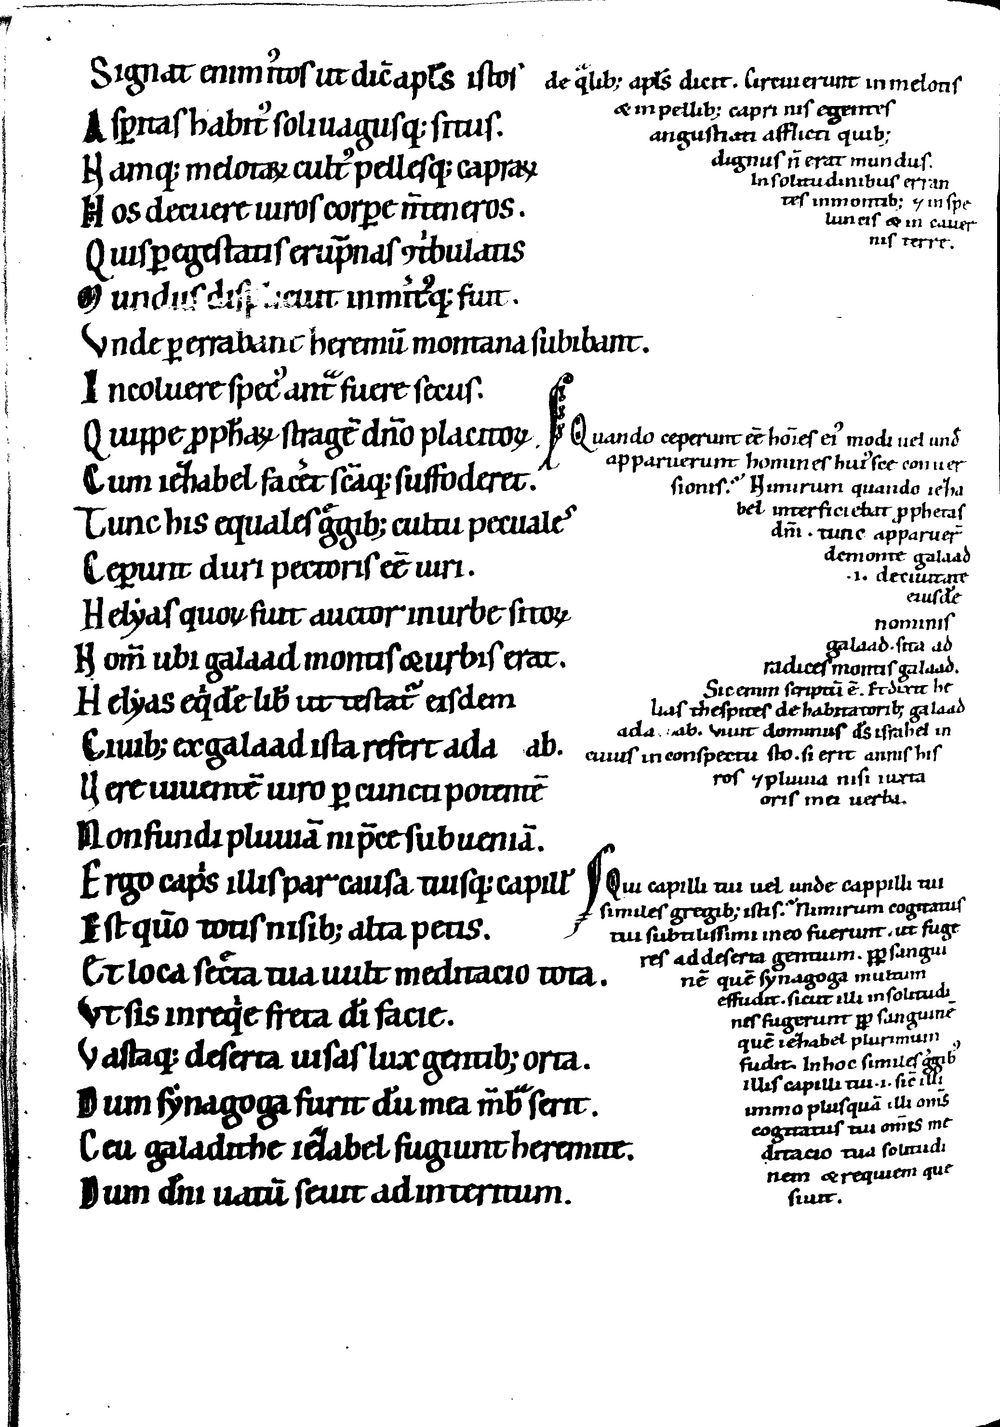 Signat enim m̅tos ut dic̅ apl's istos
Aspͥtas habitꝰ soliuagusq; situs.
Hamq; melotaꝝ cultꝰ pellesq; capraꝝ
Hos decuere uiros corpe m̅te ueros.
Quis ꝑ egestatis eru̅pnas ꝯtͥbulatis
Mundus displicuit inmītꝰq; fuit.
Vnde ꝑerrabant heremū montana subibant.
Incoluere specꝰ antͣ fuere secus.
Quippe ꝓphaꝝ stragē dn̅o placitoꝝ
Cum iezabel facͤet sc̅aq; suffoderet.
Tunc his equales gͤgib; cultu pecualeˢ
Ceꝑunt duri pectoris eē uiri.
Helyas quoꝝ fuit auctor in urbe sitoꝝ
Nom̅ ubi galaad montis & urbis erat.
Helyas eqͥdē lib' ut testatͣ eisdem
Ciuib; ex galaad ista refert ada ab.
Viuere uiuentē uiro ꝑ cuncta potentē
Non fundi pluuiā ni p̅ce sub ueniā.
Ergo capͥs illis par causa tuisq; capillˢ
Est quō totis nisib; alta petis.
Et loca secͤta tua uult meditacio tota.
Vt sis in reqͥe freta dī facie.
Vastaq; deserta uisas lux gentib; orta.
Dum synagoga furit du̅ mea m̅bͣ serit.
Ceu galadithe iezabel fugiunt heremite.
Dum dn̅i uatū seuit ad interitum.
de qͣlib; apl's dicit. Circuierunt in melotis
& in pellib; caprinis egentes
angustiati afflicti quib;
dignus n̅ erat mundus.
In solitudinibus erran
tes in montib; ⁊ in spe
luncis & in cauer
nis terre.
Quando ceperunt eē ho̅ies eiꝰ modi uel und̅
apparuerunt homines huiꝰsce conuer
sionis. Nimirum quando ieza
bel interficiebat ꝓphetas
dn̅i. tunc apparuer̅
de monte galaad
.i. de ciuitate
eiusdē
nominis
galaad. sita ad
radices montis galaad.
Sic enim scriptū ē. Et dixit he
lias thespites de habitatorib; galaad
ad a ab. Viuit dominus d̅s israhel in
cuius in conspectu sto. si erit annis his
ros ⁊ pluuia nisi iuxta
oris mei uerba.
Qui capilli tui uel unde cappilli tui
similes gregib; istis. Nimirum cogitatus
tui subtilissimi in eo fuerunt. ut fuge
res ad deserta gentium. ꝓp sangui
nē quē synagoga mutum
effudit. sicut illi in solitudi
nes fugerunt ꝓp sanguinē
quē iezabel plurimum
fudit. In hoc similes gͤgibꝰ
illis capilli tui .i. sic̅ illi
immo plusquā illi om̅s
cogitatus tui om̅es me
ditacio tua solitudi
nem & requiem que
siuit.